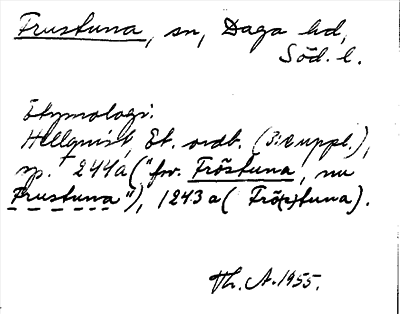 Frustuna, sn, Daga hd,
Söd. l.
Etymologi:
Hellquist, Et. ordb. (3:e uppl.),
sp. 244a ("fsv. Fröstuna, nu
Frustuna"), 1243a ( Frö(s)tuna).
Th. A. 1955.